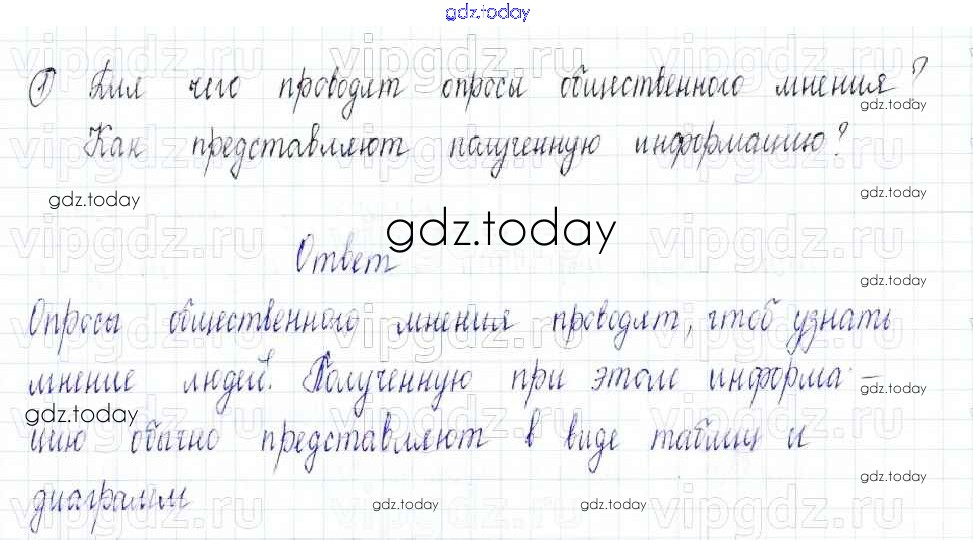 gdz.today
① Для чего проводят опросы общественного мнения?
gdz.today
Как представляют полученную информацию?
gdz.today
gdz.today
gdz.today
Ответ
gdz.today
Опросы общественного мнения проводят, чтоб узнать
мнение людей. Полученную при этом информа-
gdz.today
gdz.today
цию обычно представляют в виде таблиц и
gdz.today
диаграмм
gdz.today
gdz.today
vipgdz.ru